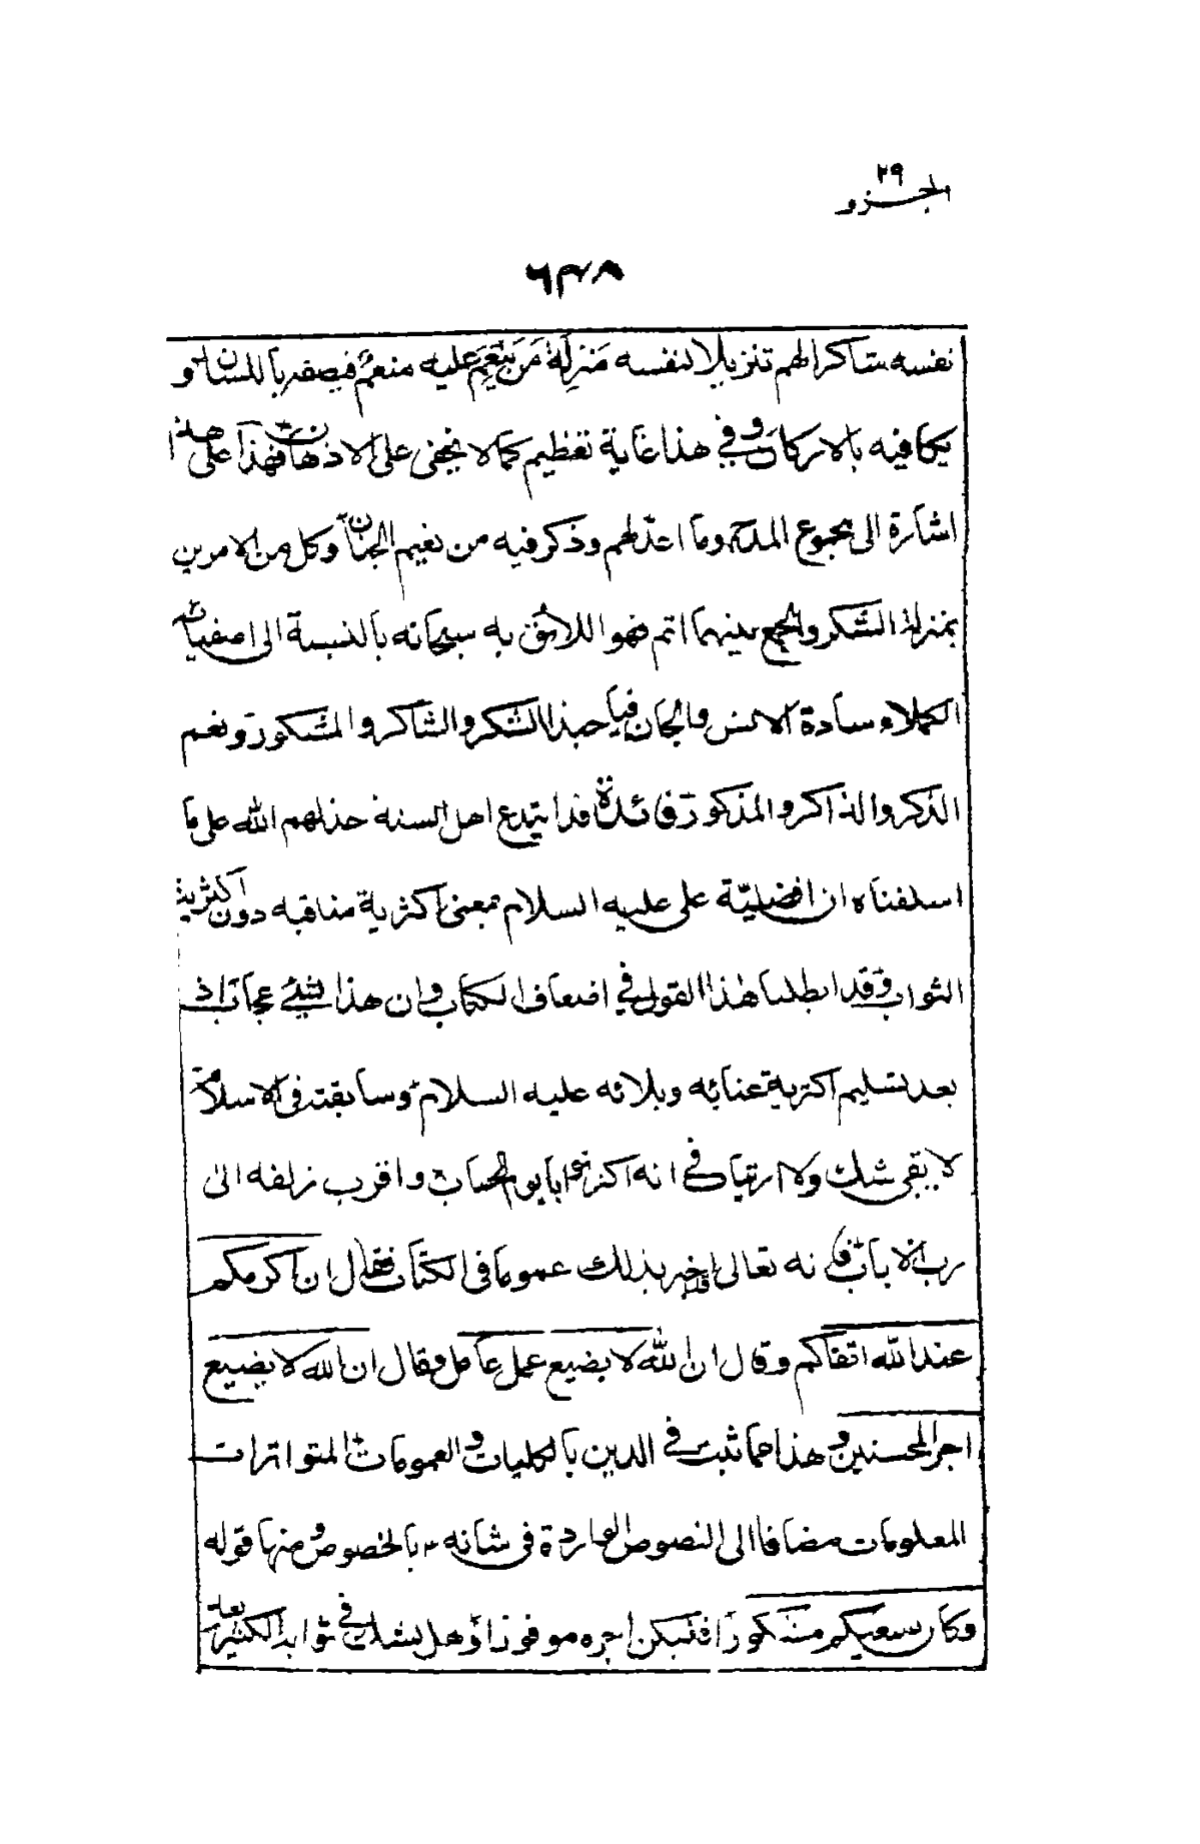 ٢٩
الجزو
٦٣٨
نفسه شاكرا لهم تنزيلا لنفسه منزلة من ينعم عليه منعم فيصفه باللسان و
يكافيه بالاركان و في هذا غاية تعظيم كما لا يخفى على الاذهان فهذا على هذا
اشارة الى مجموع المدح وما اعد لهم وذكر فيه من نعيم الجنان وكل من الامرين
بمنزلة الشكر والجمع بينهما اتم فهو اللائق به سبحانه بالنسبة الى اصفيائه
الكملاء سادة الانس والجان فيا حبذا الشكر والشاكر والمشكور ونعم
الذكر والذاكر والمذكور فائدة قد ابتدع اهل السنة خذلهم الله على ما
اسلفناه ان افضلية على عليه السلام بمعنى اكثرية مناقبه دون اكثرية
الثواب وقد ابطلنا هذا القول في اضعاف الكتاب وان هذا لشئ عجاب اذ
بعد تسليم اكثرية عنائه وبلائه عليه السلام وسابقته في الاسلام
لا يبقى شك ولا ارتياب في انه اكثر ثوابا يوم الحساب واقرب زلفه الى
رب الارباب فانه تعالى قد اخبر بذلك عموما في الكتاب فقال ان اكرمكم
عند الله اتقاكم وقال ان الله لا يضيع عمل عامل وقال ان الله لا يضيع
اجر المحسنين و هذا مما ثبت في الدين بالكليات و العمومات المتواترات
المعلومات مضافا الى النصوص الواردة في شانه ع بالخصوص و منها قوله
وكان سعيكم مشكورا فليكن اجره موفورا وهل يشك في ثوابه الكثير بعد